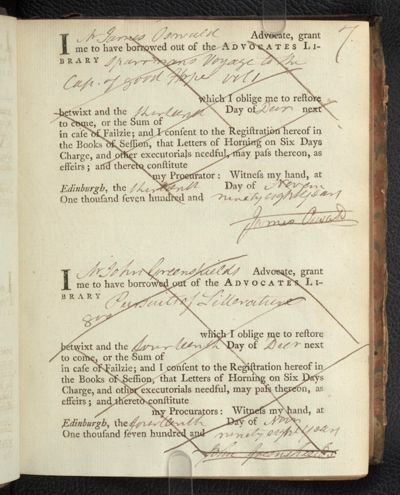 7.
I Mr James Oswald Advocate, grant
me to have borrowed out of the ADVOCATES LI-
BRARY Sparrmans Voyage to the
Cape of good Hope vol 1
which I oblige me to reſtore
betwixt and the thirteenth Day of Decr next
to come, or the Sum of
in caſe of Failzie; and I conſent to the Regiſtration hereof in
the Books of Seſſion, that Letters of Horning on Six Days
Charge, and other executorials needful, may paſs thereon, as
effeirs; and thereto conſtitute
my Procurator: Witneſs my hand, at
Edinburgh, the thirteenth Day of Novem
One thouſand ſeven hundred and ninety eight years
James Oswald
I Mr John Greenshields Advocate, grant
me to have borrowed out of the ADVOCATES LI-
BRARY Pursuits of Litterature
8vo
which I oblige me to reſtore
betwixt and the fourteenth Day of Decr next
to come, or the Sum of
in caſe of Failzie; and I conſent to the Regiſtration hereof in
the Books of Seſſion, that Letters of Horning on Six Days
Charge, and other executorials needful, may paſs thereon, as
effeirs; and thereto conſtitute
my Procurators: Witneſs my hand, at
Edinburgh, the fourteenth Day of Novr
One thouſand ſeven hundred and ninety eight years
John Greenshields